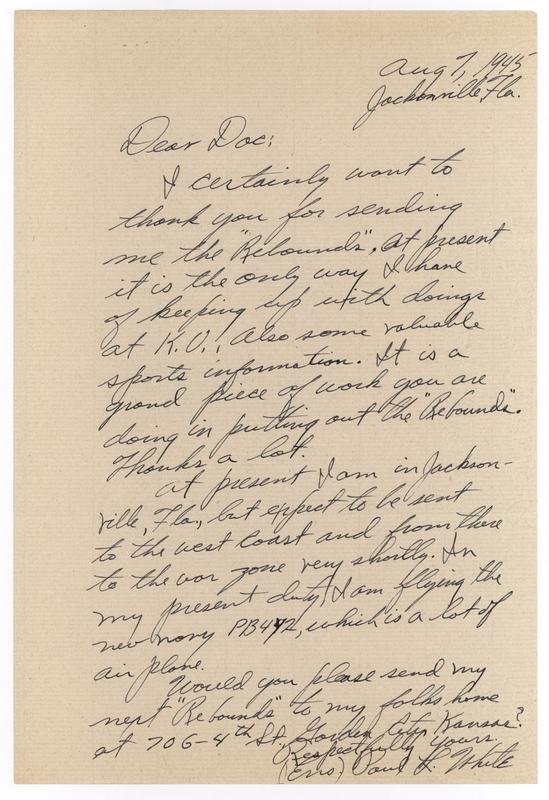 Aug 7, 1945
Jacksonville, Fla.
Dear Doc:
I certainly want to
thank you for sending
me the "Rebounds". At present
it is the only way I have
of keeping up with doings
at K.U.! Also some valuable
sports information. It is a
grand piece of work you are
doing in putting out the "Rebounds".
Thanks, a lot.
At present I am in Jackson-
ville, Fla., but expect to be sent
to the west coast and from there
to the war zone very shortly. In
my present duty I am flying the
new navy PB4Y2, which is a lot of
air plane.
Would you please send my
next "Rebounds" to my folks home
at 706-4th St. Garden City, Kansas?
Respectfully yours.
(Ens) Paul L. White